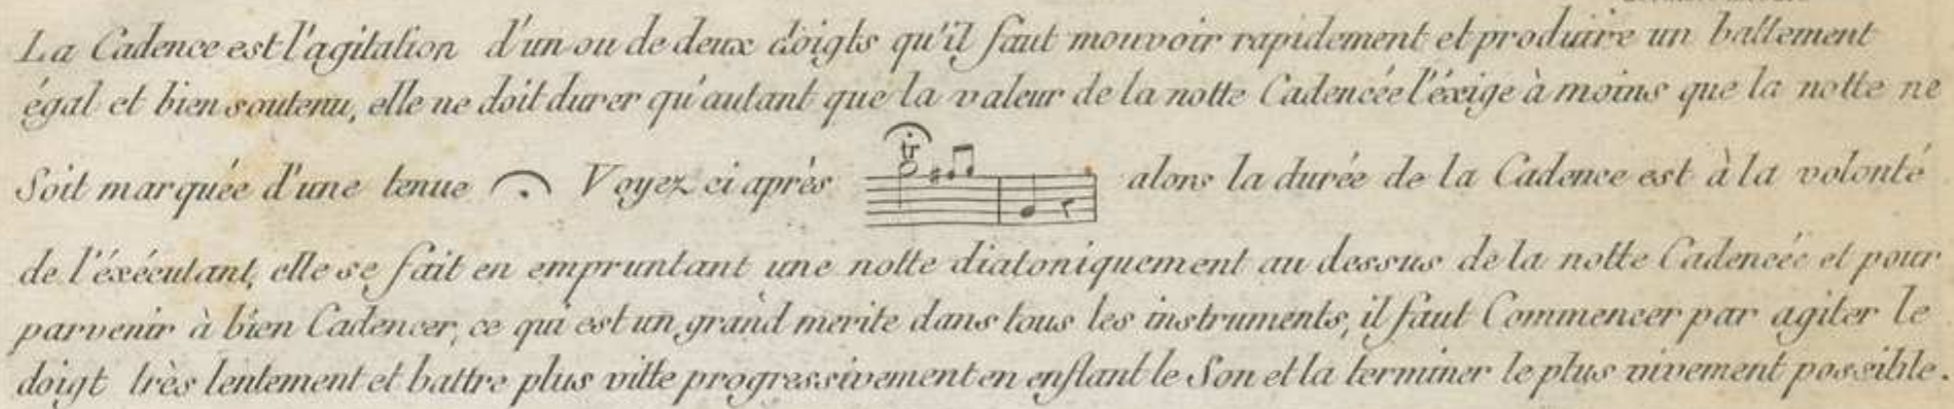 La Cadence est l'agitation d'un ou de deux doigts qu'il faut mouvoir rapidement et produire un battement
égal et bien soutenu, elle ne doit durer qu'autant que la valeur de la notte Cadencée l'éxige à moins que la notte ne
Soit marquée d'une tenue 𝄐 Voyez ci après tr alors la durée de la Cadence est à la volonté
de l'éxécutant, elle se fait en empruntant une notte diatoniquement au dessus de la notte Cadencée et pour
parvenir à bien Cadencer, ce qui est un grand merite dans tous les instruments, il faut Commencer par agiter le
doigt très lentement et battre plus vitte progressivement en enflant le Son et la terminer le plus vivement possible.